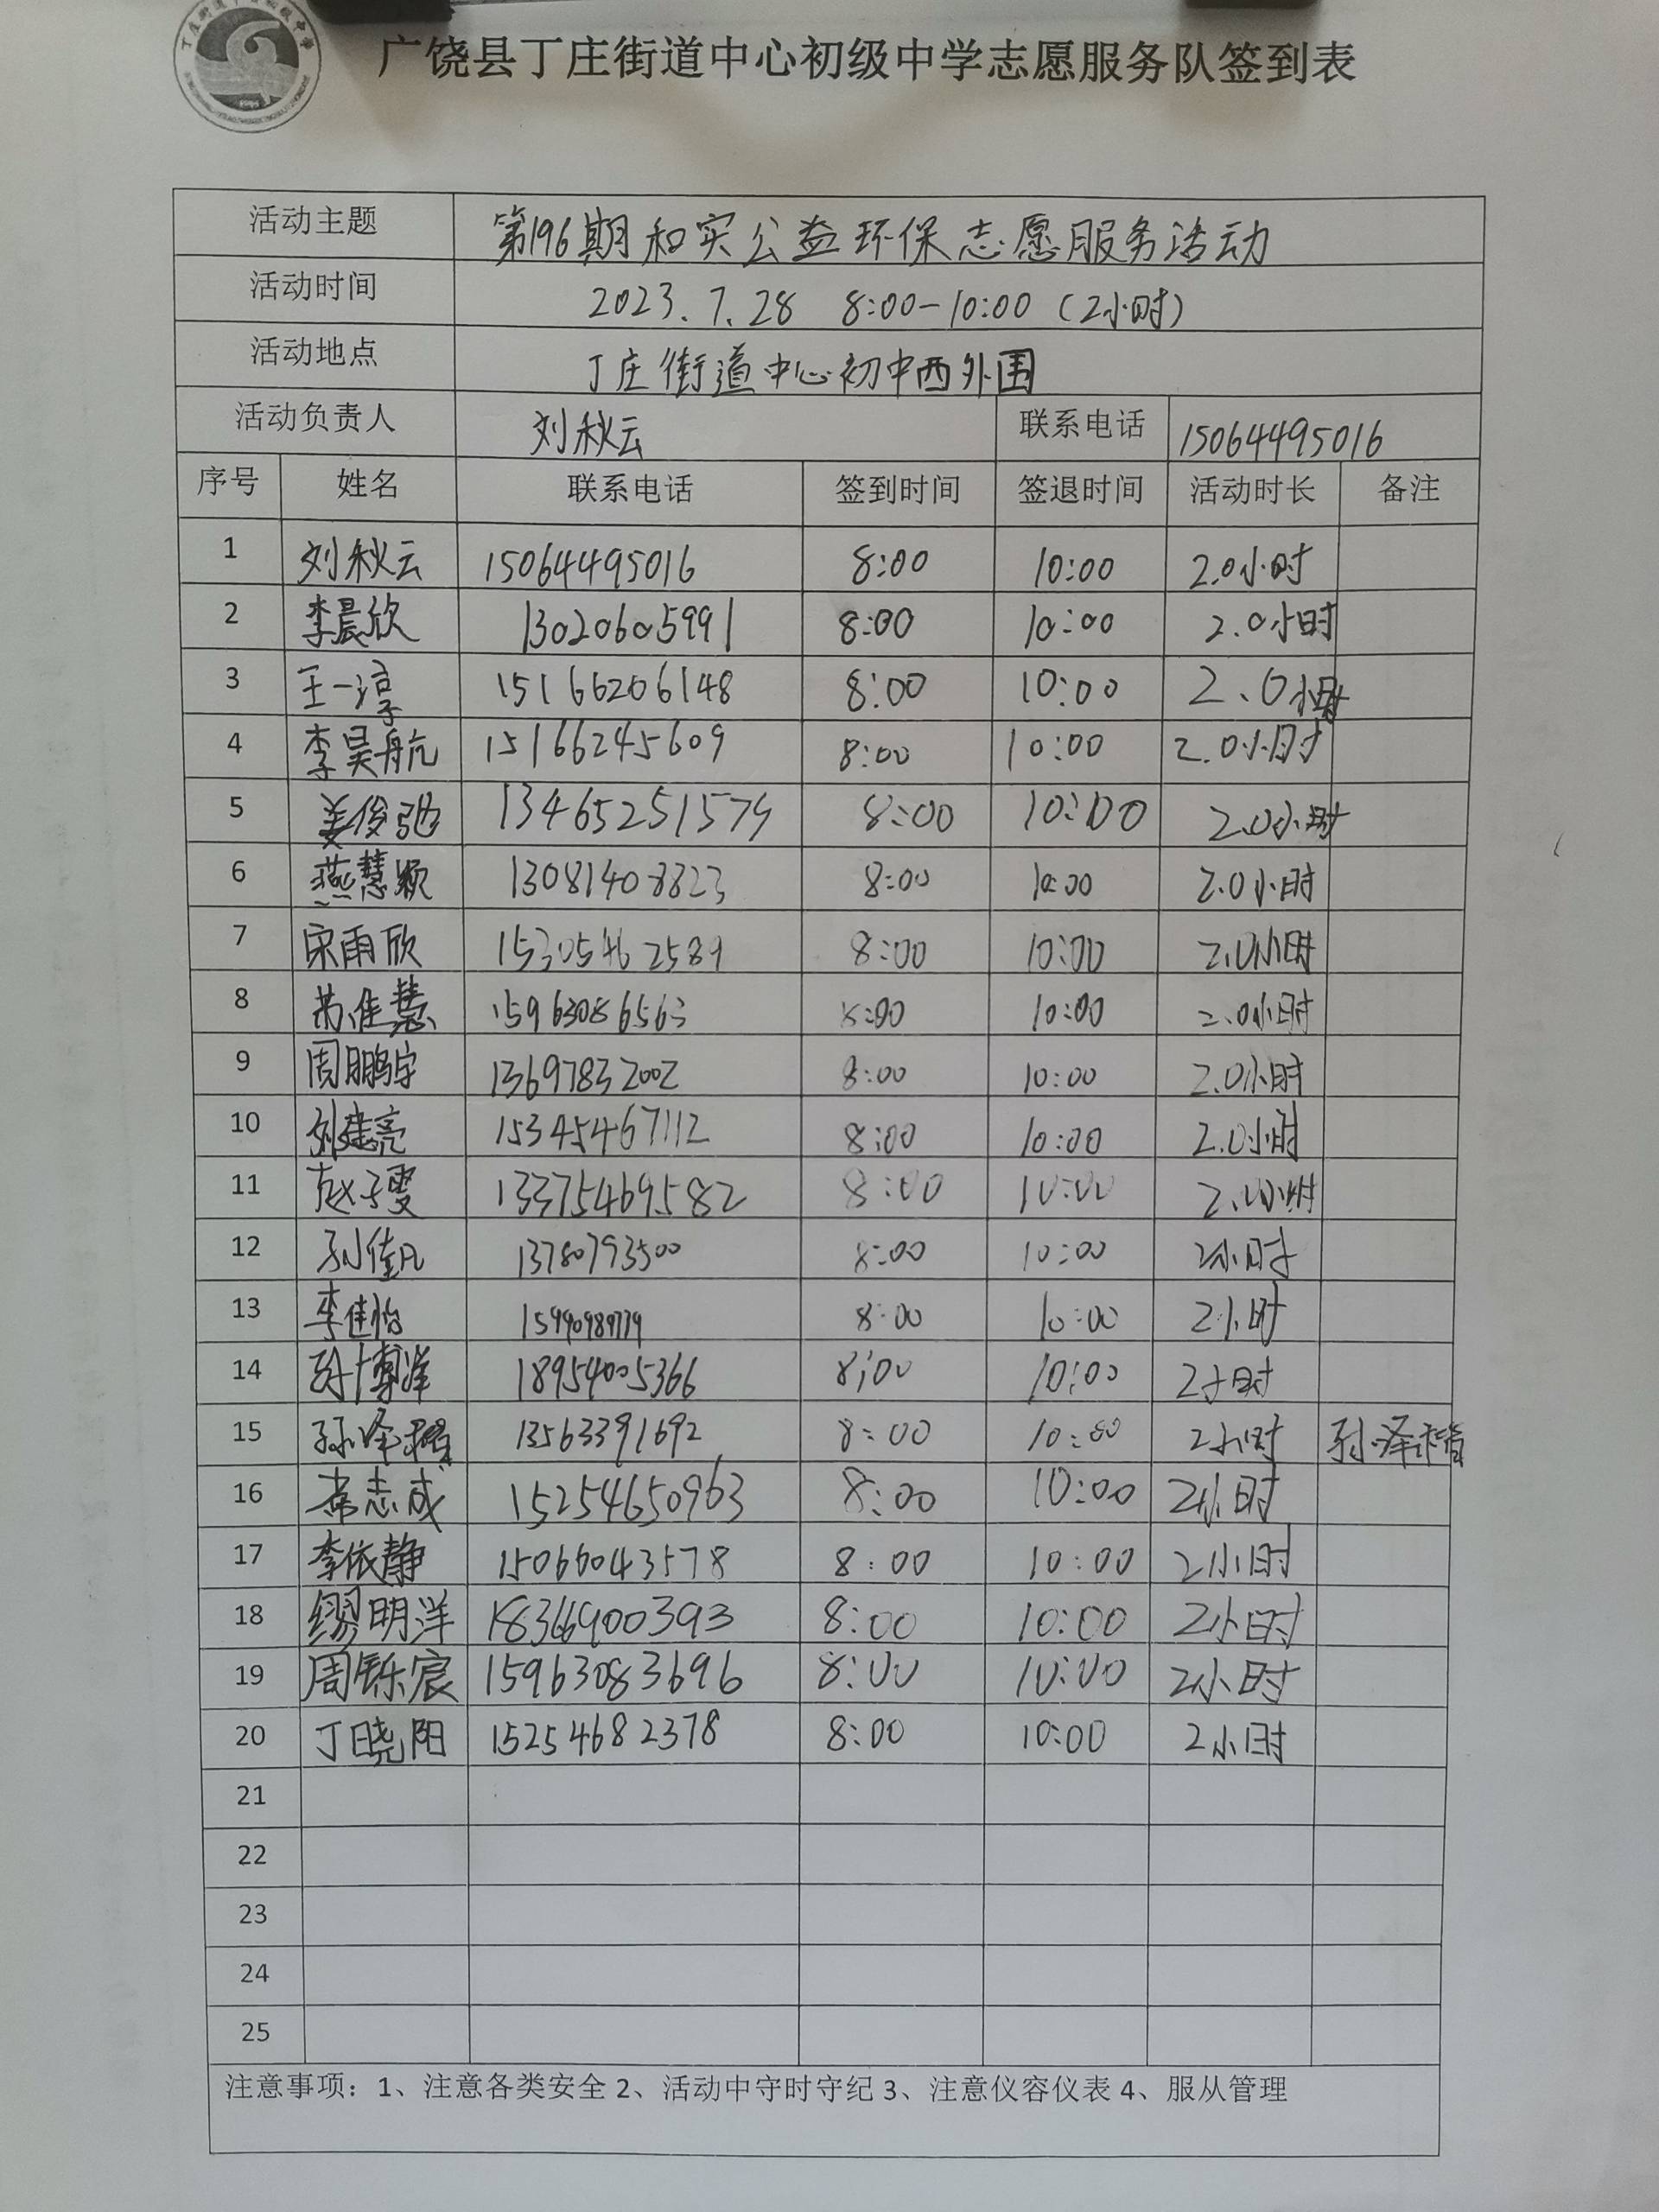 广饶县丁庄街道中心初级中学志愿服务队签到表
活动主题 第196期和实公益环保志愿服务活动
活动时间 2023.7.28 8:00-10:00(2小时)
活动地点 丁庄街道中心初中西外围
活动负责人 刘秋云 联系电话 15064495016
序号 姓名 联系电话 签到时间 签退时间 活动时长 备注
1 刘秋云 15064495016 8:00 10:00 2.0小时
2 李晨欣 13020605991 8:00 10:00 2.0小时
3 王一淳 15166206148 8:00 10:00 2.0小时
4 李昊航 15166245609 8:00 10:00 2.0小时
5 姜俊弛 13465251579 8:00 10:00 2.0小时
6 燕慧颖 13081408823 8:00 10:00 2.0小时
7 宋雨欣 15305462589 8:00 10:00 2.0小时
8 15963086563 8:00 10:00 2.0小时
9 周鹏宇 13697832002 8:00 10:00 2.0小时
10 15345467112 8:00 10:00 2.0小时
11 赵子雯 13375469582 8:00 10:00 2.0小时
12 孙佳凡 13780793500 8:00 10:00 2小时
13 李佳怡 8:00 10:00 2小时
14 18954005366 8:00 10:00 2小时
15 孙泽楷 13563391692 8:00 10:00 2小时 孙泽楷
16 常志成 15254650963 8:00 10:00 2小时
17 李依静 15066043578 8:00 10:00 2小时
18 缪明洋 18366900393 8:00 10:00 2小时
19 周铄宸 15963083696 8:00 10:00 2小时
20 丁晓阳 15254682378 8:00 10:00 2小时
21
22
23
24
25
注意事项：1、注意各类安全 2、活动中守时守纪 3、注意仪容仪表 4、服从管理